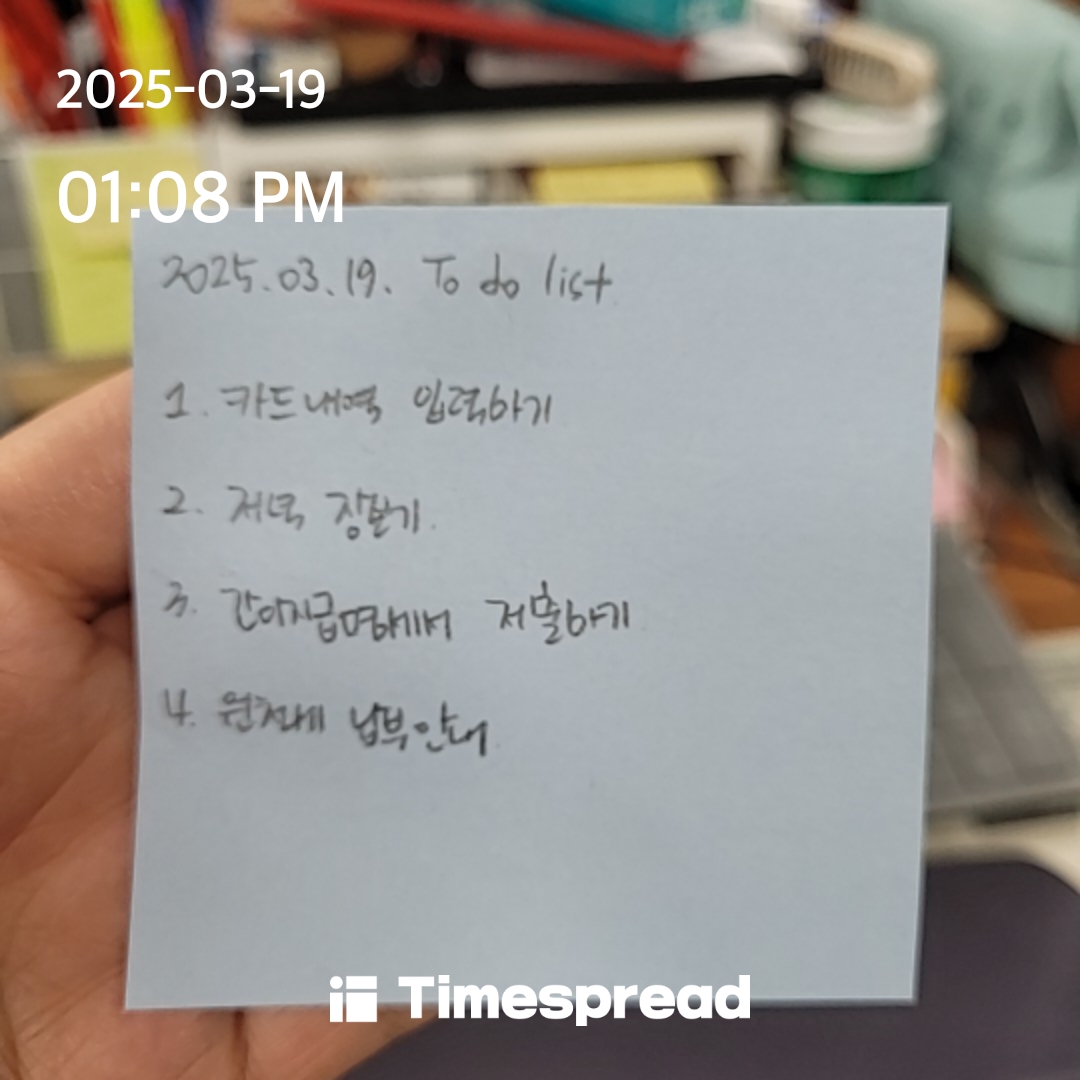 2025-03-19
01:08 PM
2025.03.19. To do list
1. 카드내역 입력하기
2. 저녁 장보기.
3. 간이지급명세서 제출하기
4. 원천세 납부안내
Timespread